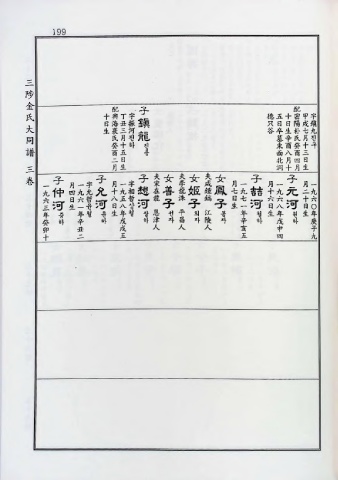 199
三陟金氏大同譜 三卷
字鎭九진구
甲戌七月十三日生
配密陽朴氏癸酉四月
十日生辛酉八月十
五日卒墓末面北洞
德只谷
子鎭龍진룡
字振河진하
丁丑三月十五日生
配興海裵氏癸酉二月
十日生
一九六〇年庚子九
月二十日生
子元河원하
一九六八年戊申四
月十六日生
子喆河철하
一九七一年辛亥五
月七日生
女鳳子봉자
夫咸鍾鎬 江陵人
女姬子희자
夫李龍洙 平昌人
女善子선자
夫宋喜龍 恩津人
子想河상하
字相哲상철
一九五八年戊戌五
月十八日生
子允河윤하
字允哲윤철
一九六一年辛丑二
月四日生
子仲河중하
一九六三年癸卯十